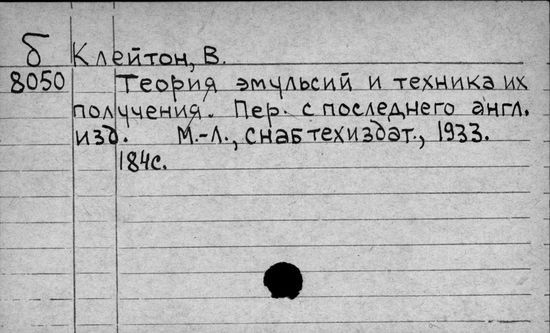 б Клейтон, В.
8050 Теория эмульсий и техника их
получения. Пер. с последнего англ.
изд. М.-Л., Снабтехиздат., 1933.
184с.